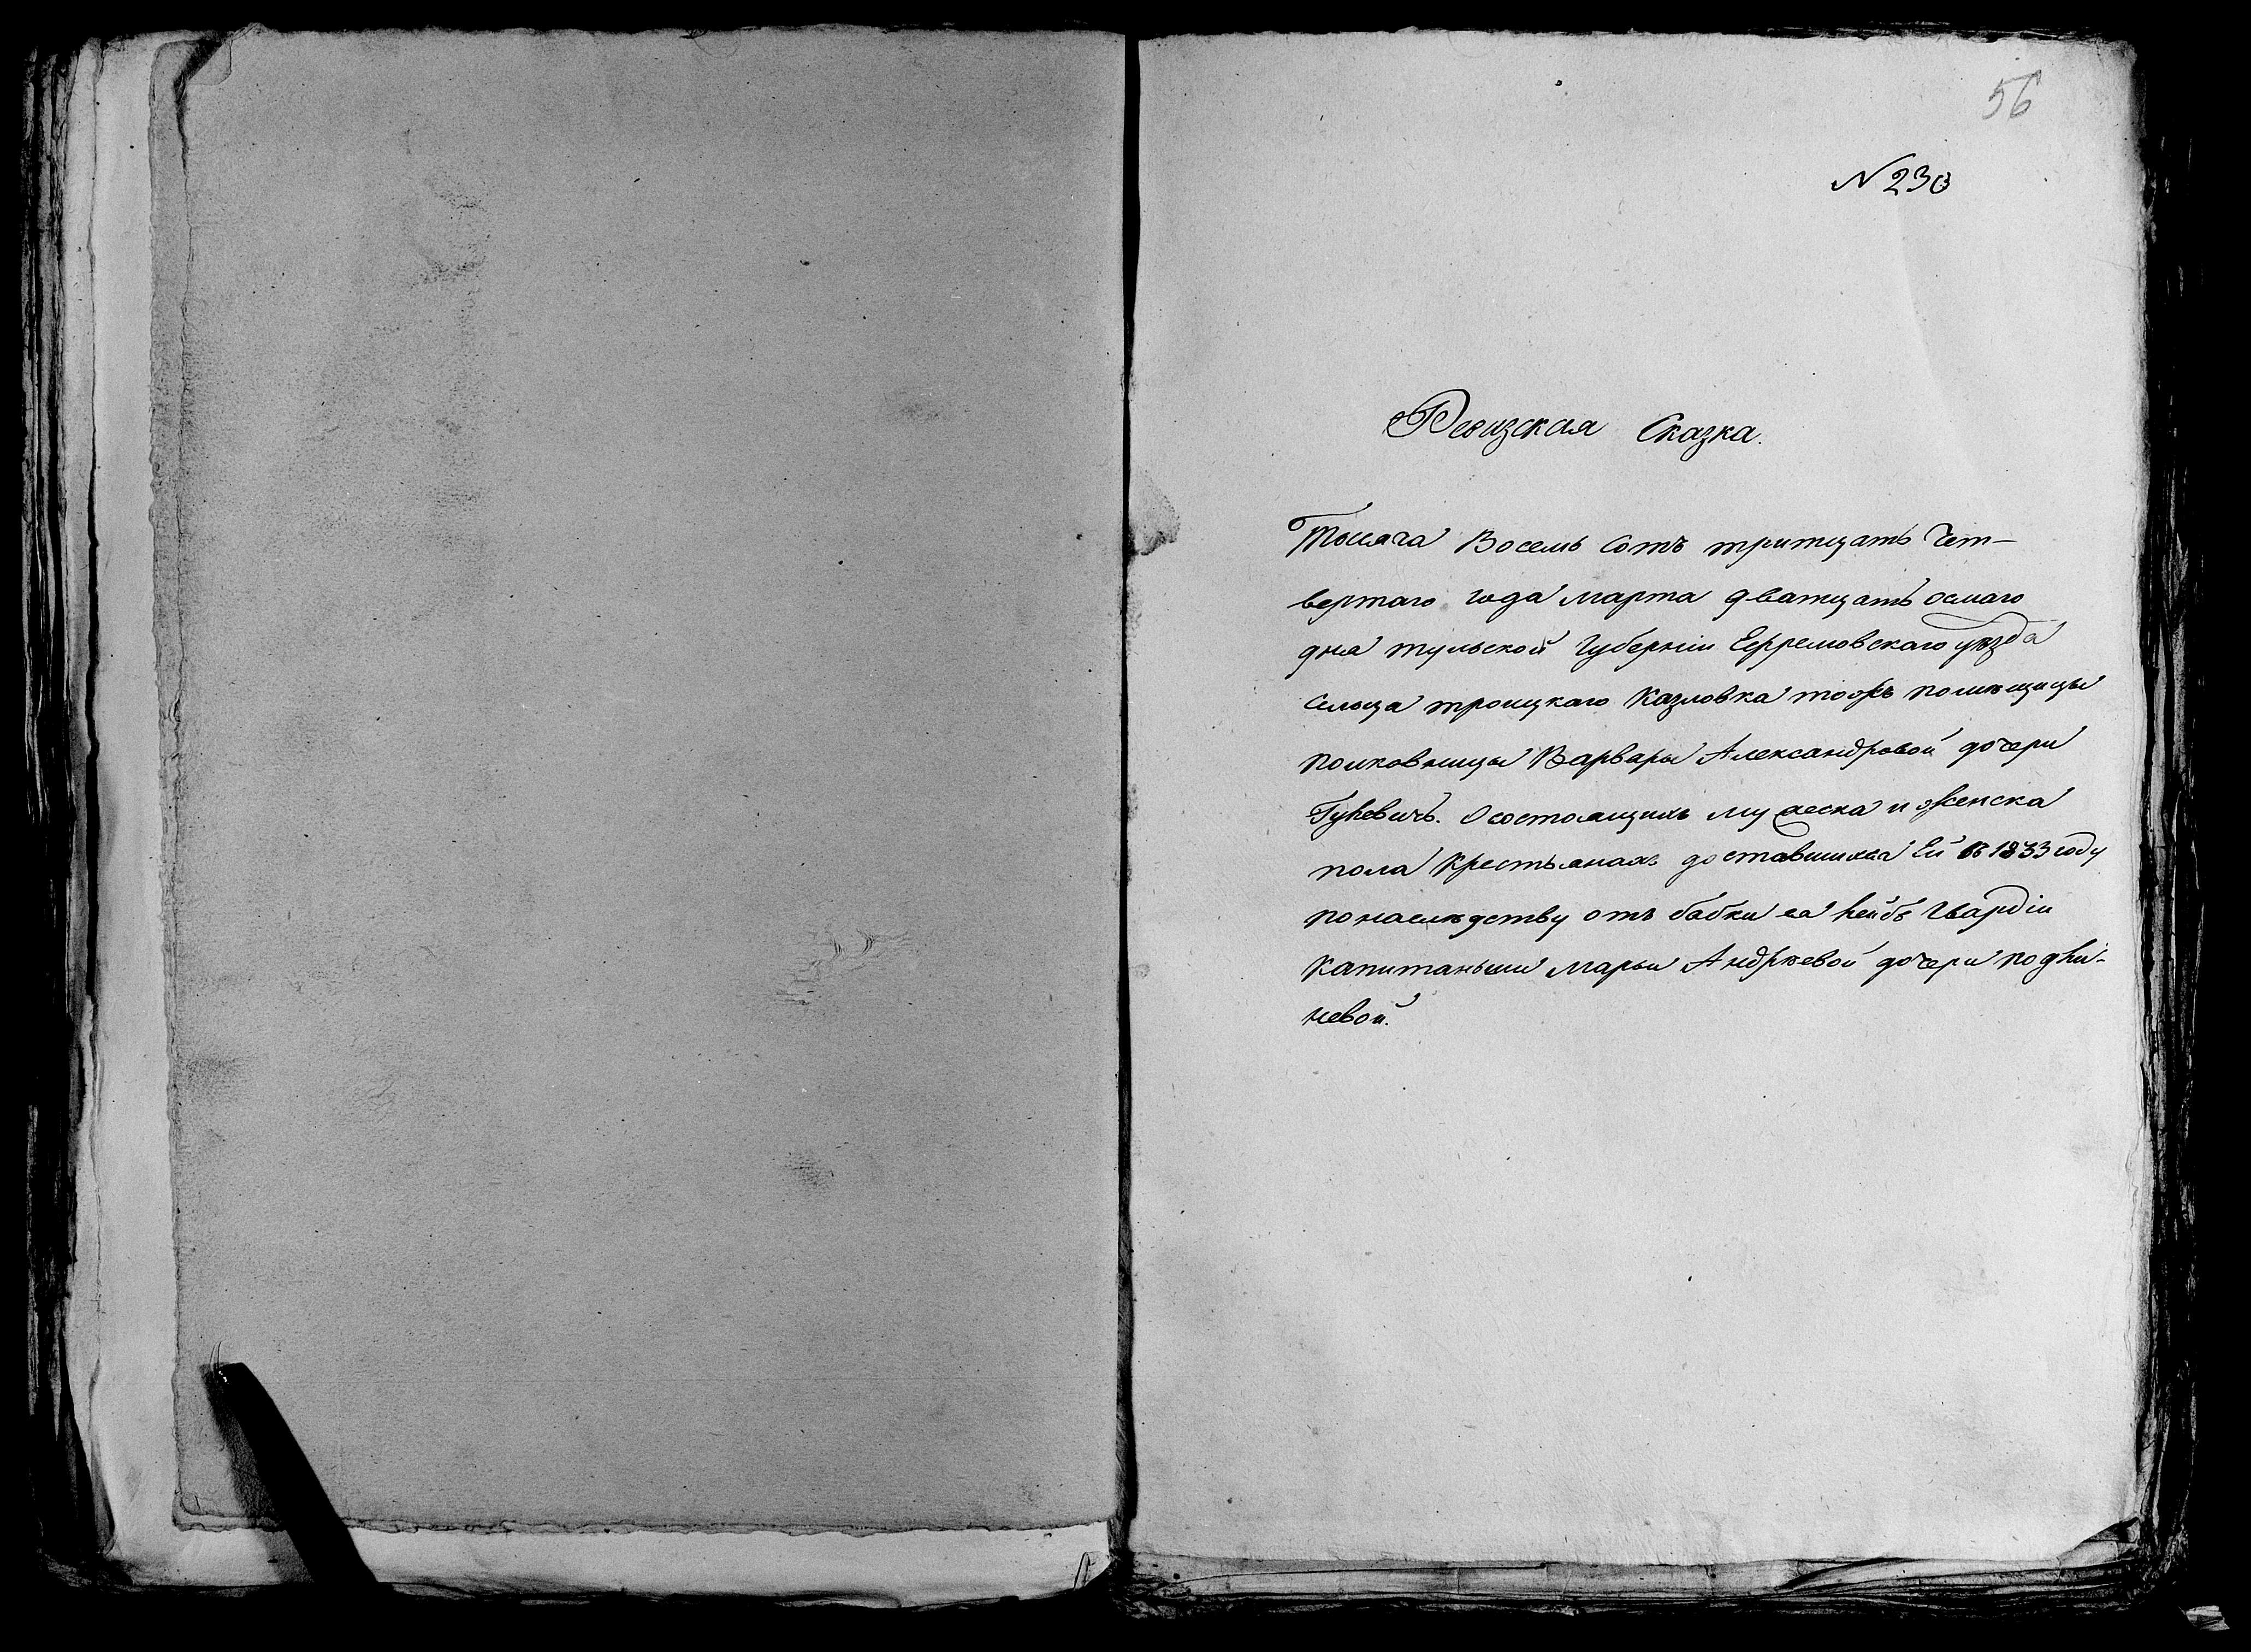 56
N 230
Ревизская Сказка.
Тысяча Восемь Сотъ тритцать Чет-
вертаго года марта дватцать осмаго
дня тульской Губерніи Ефремовскаго уѣзда
сельца троицкаго Казловка тожъ помѣщицы
полковницы Варвары Александровой дочери
О состоящихъ мужеска и женска
пола Крестьянахъ доставшихся Ей въ 1833 году
по наслѣдству отъ бабки ея лейбъ Гвардіи
Капитаньши марьи Андрѣевой дочери